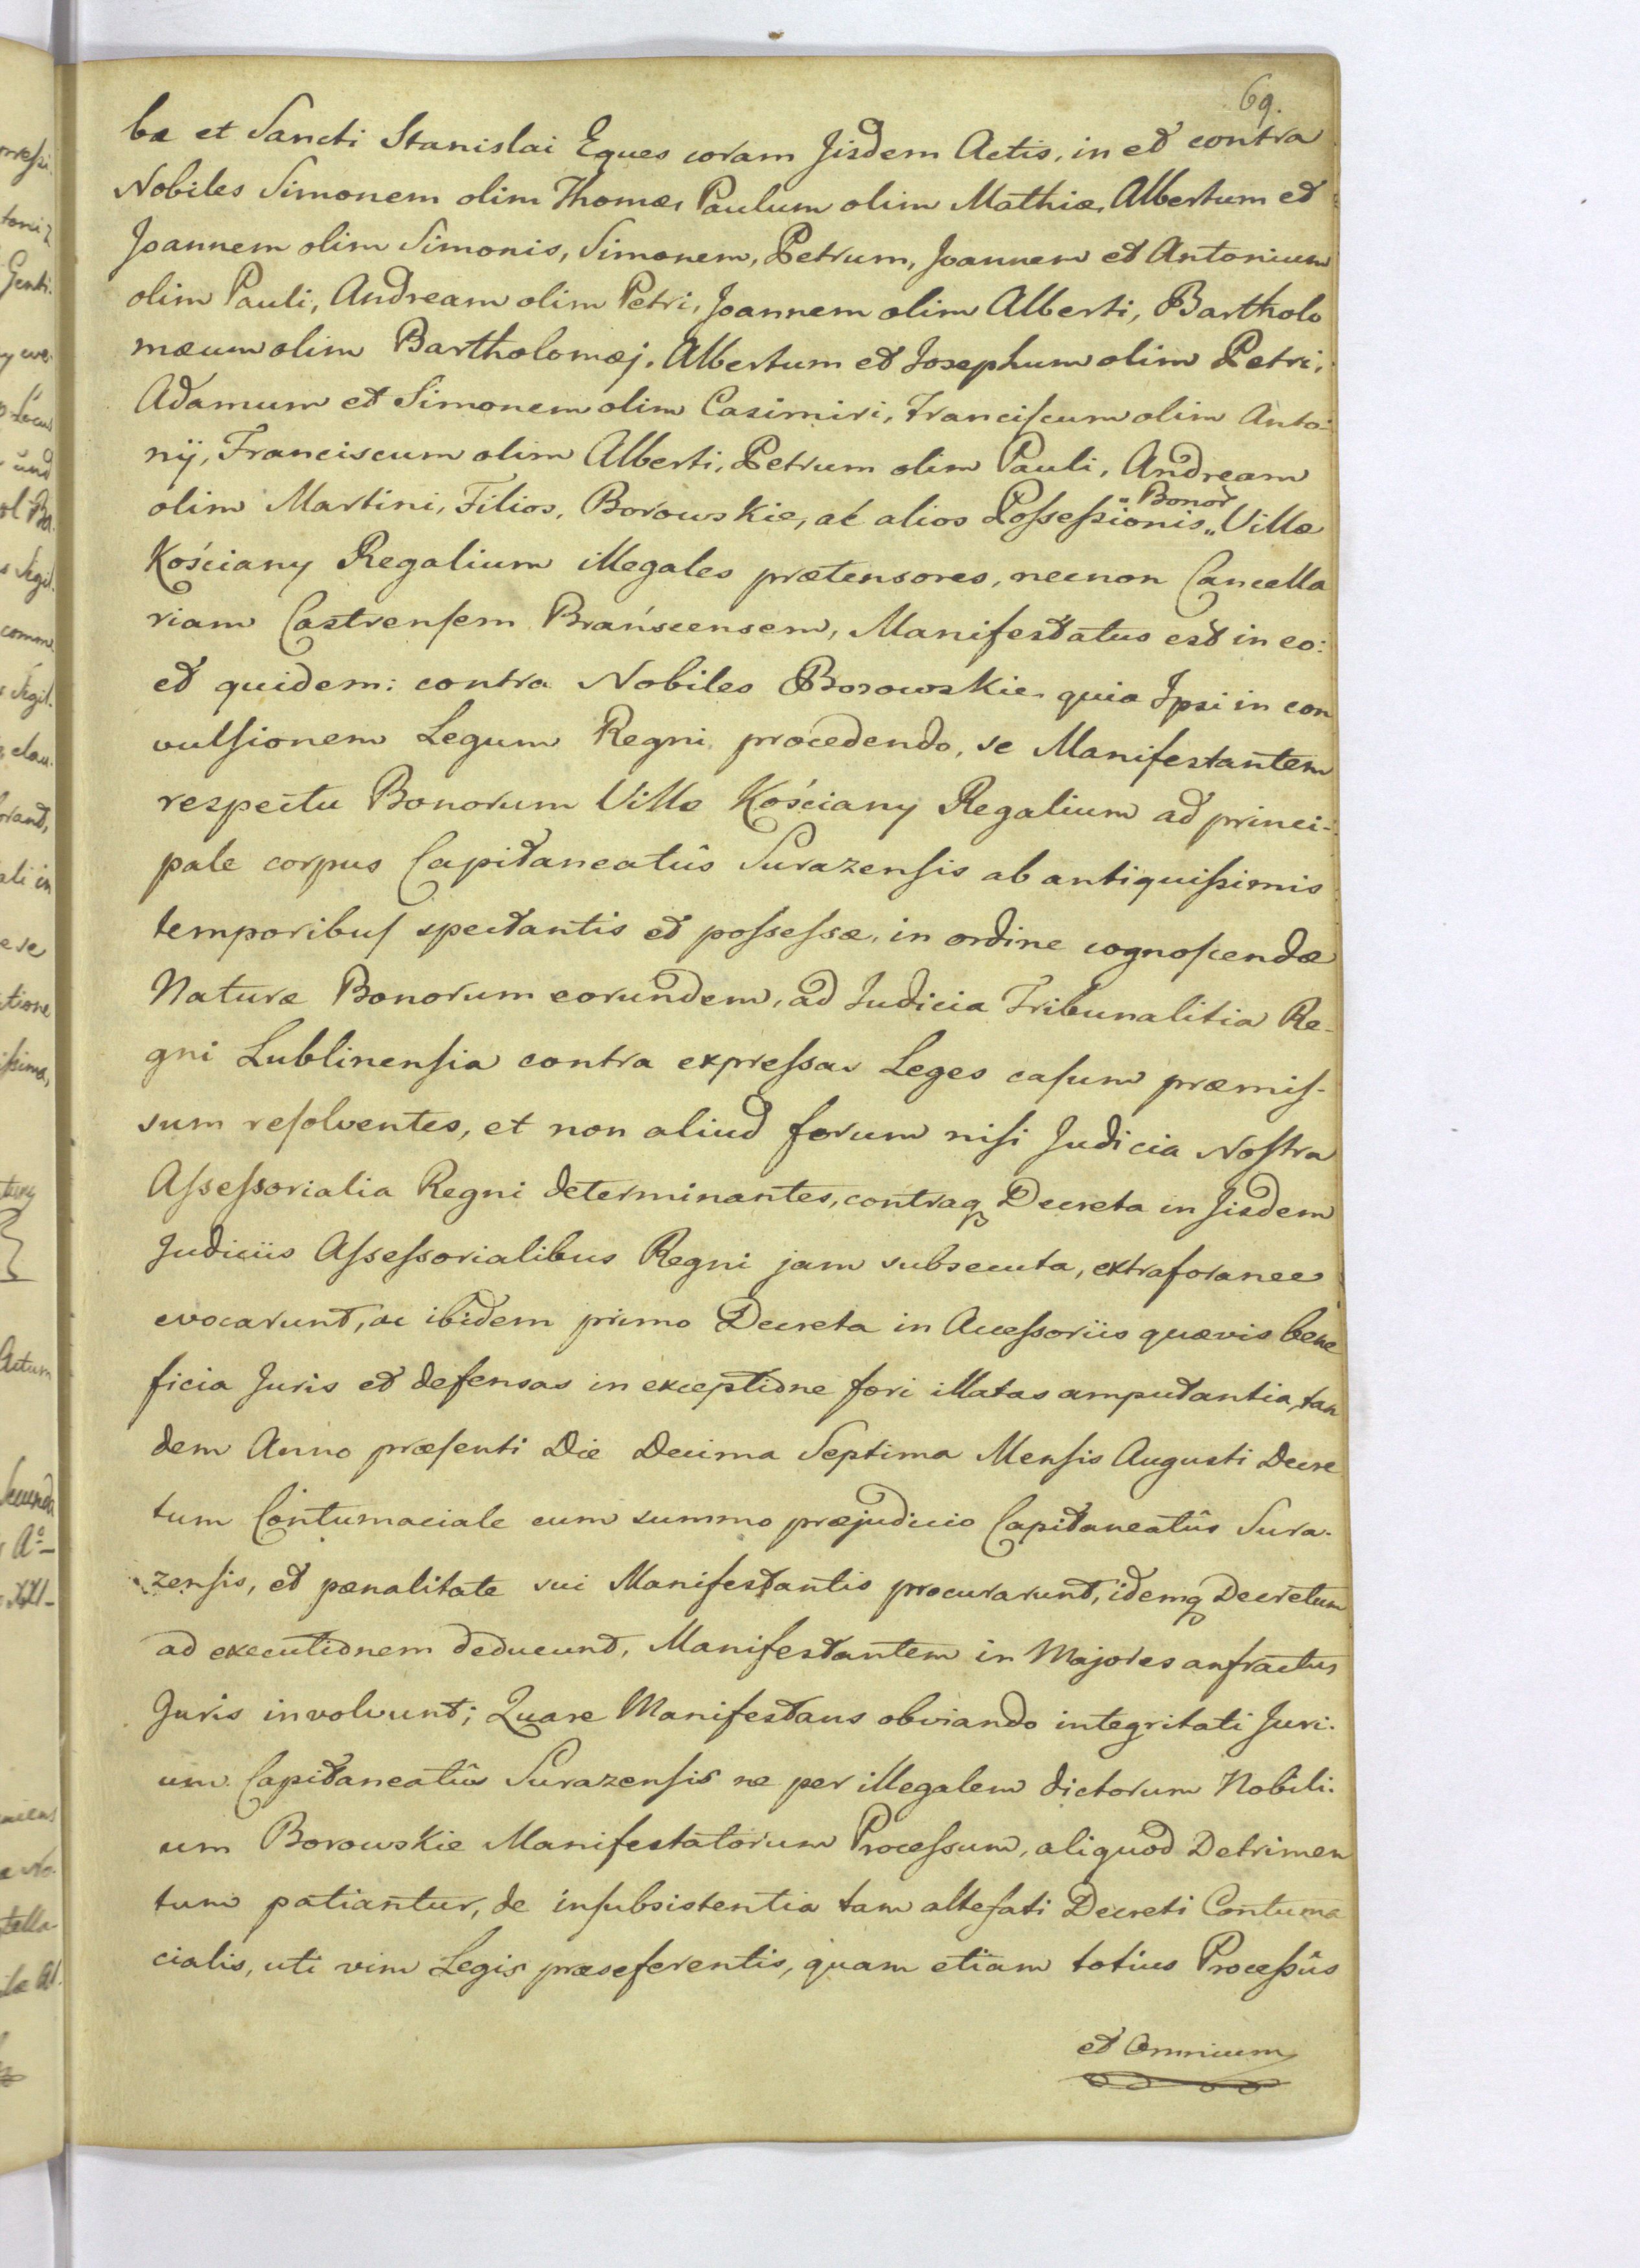 69.
ba et Sancti Stanislai Eques coram Jisdem Actis, in et contra
Nobiles Simonem olim Thomæ, Paulum olim Mathiæ, Albertum et
Joannem olim Simonis, Simonem, Petrum, Joannem et Antonium
olim Pauli, Andream olim Petri, Joannem olim Alberti, Bartholo
mæum olim Bartholomæj, Albertum et Josephum olim Petri,
Adamum et Simonem olim Casimiri, Franciſcum olim Anto-
nij, Franciscum olim Alberti, Petrum olim Pauli, Andream
olim Martini, Filios, Borowskie, ac alios Poſseſsionis „ Bonor „ Villæ
Kościany Regalium illegales prætensores, necnon Cancella
riam Castrenſem Brańscensem, Manifestatus est in eo:
et quidem: contra Nobiles Borowskie quia Ipsi in con
vulſionem Legum Regni procedendo, se Manifestantem
respectu Bonorum Villæ Kościany Regalium ad princi-
pale corpus Capitaneatûs Surazenſis ab antiquiſsimis
temporibuſ spectantis et poſseſsæ, in ordine cognoſcendæ
Naturæ Bonorum eorundem, ad Judicia Tribunalitia Re-
gni Lublinenſia contra expreſsas Leges caſum præmiſ-
sum reſolventes, et non aliud forum niſi Judicia Noſtra
Aſseſsorialia Regni determinantes, contraq Decreta in Jisdem
Judiciis Aſseſsorialibus Regni jam subsecuta, extraforanee
evocarunt, ac ibidem primo Decreta in Acceſsoriis quævis bene
ficia Juris et defensas in exceptione fori illatas amputantia, tan
dem Anno præſenti Die Decima Septima Menſis Augusti Decre
tum Contumaciale cum summo præjudicio Capitaneatûs Sura-
zenſis, et pænalitate sui Manifestantis procurarunt, idemq Decretum
ad executionem deducunt, Manifestantem in Majores anfractus
Juris involvunt; Quare Manifestans obviando integritati Juri-
um Capitaneatûs Surazenſis ne per illegalem dictorum Nobili-
um Borowskie Manifestatorum Proceſsum, aliquod Detrimen
tum patiantur, de inſubsistentia tam altefati Decreti Contuma
cialis, uti vim Legis præseferentis, quam etiam totius Proceſsûs
et Omnium